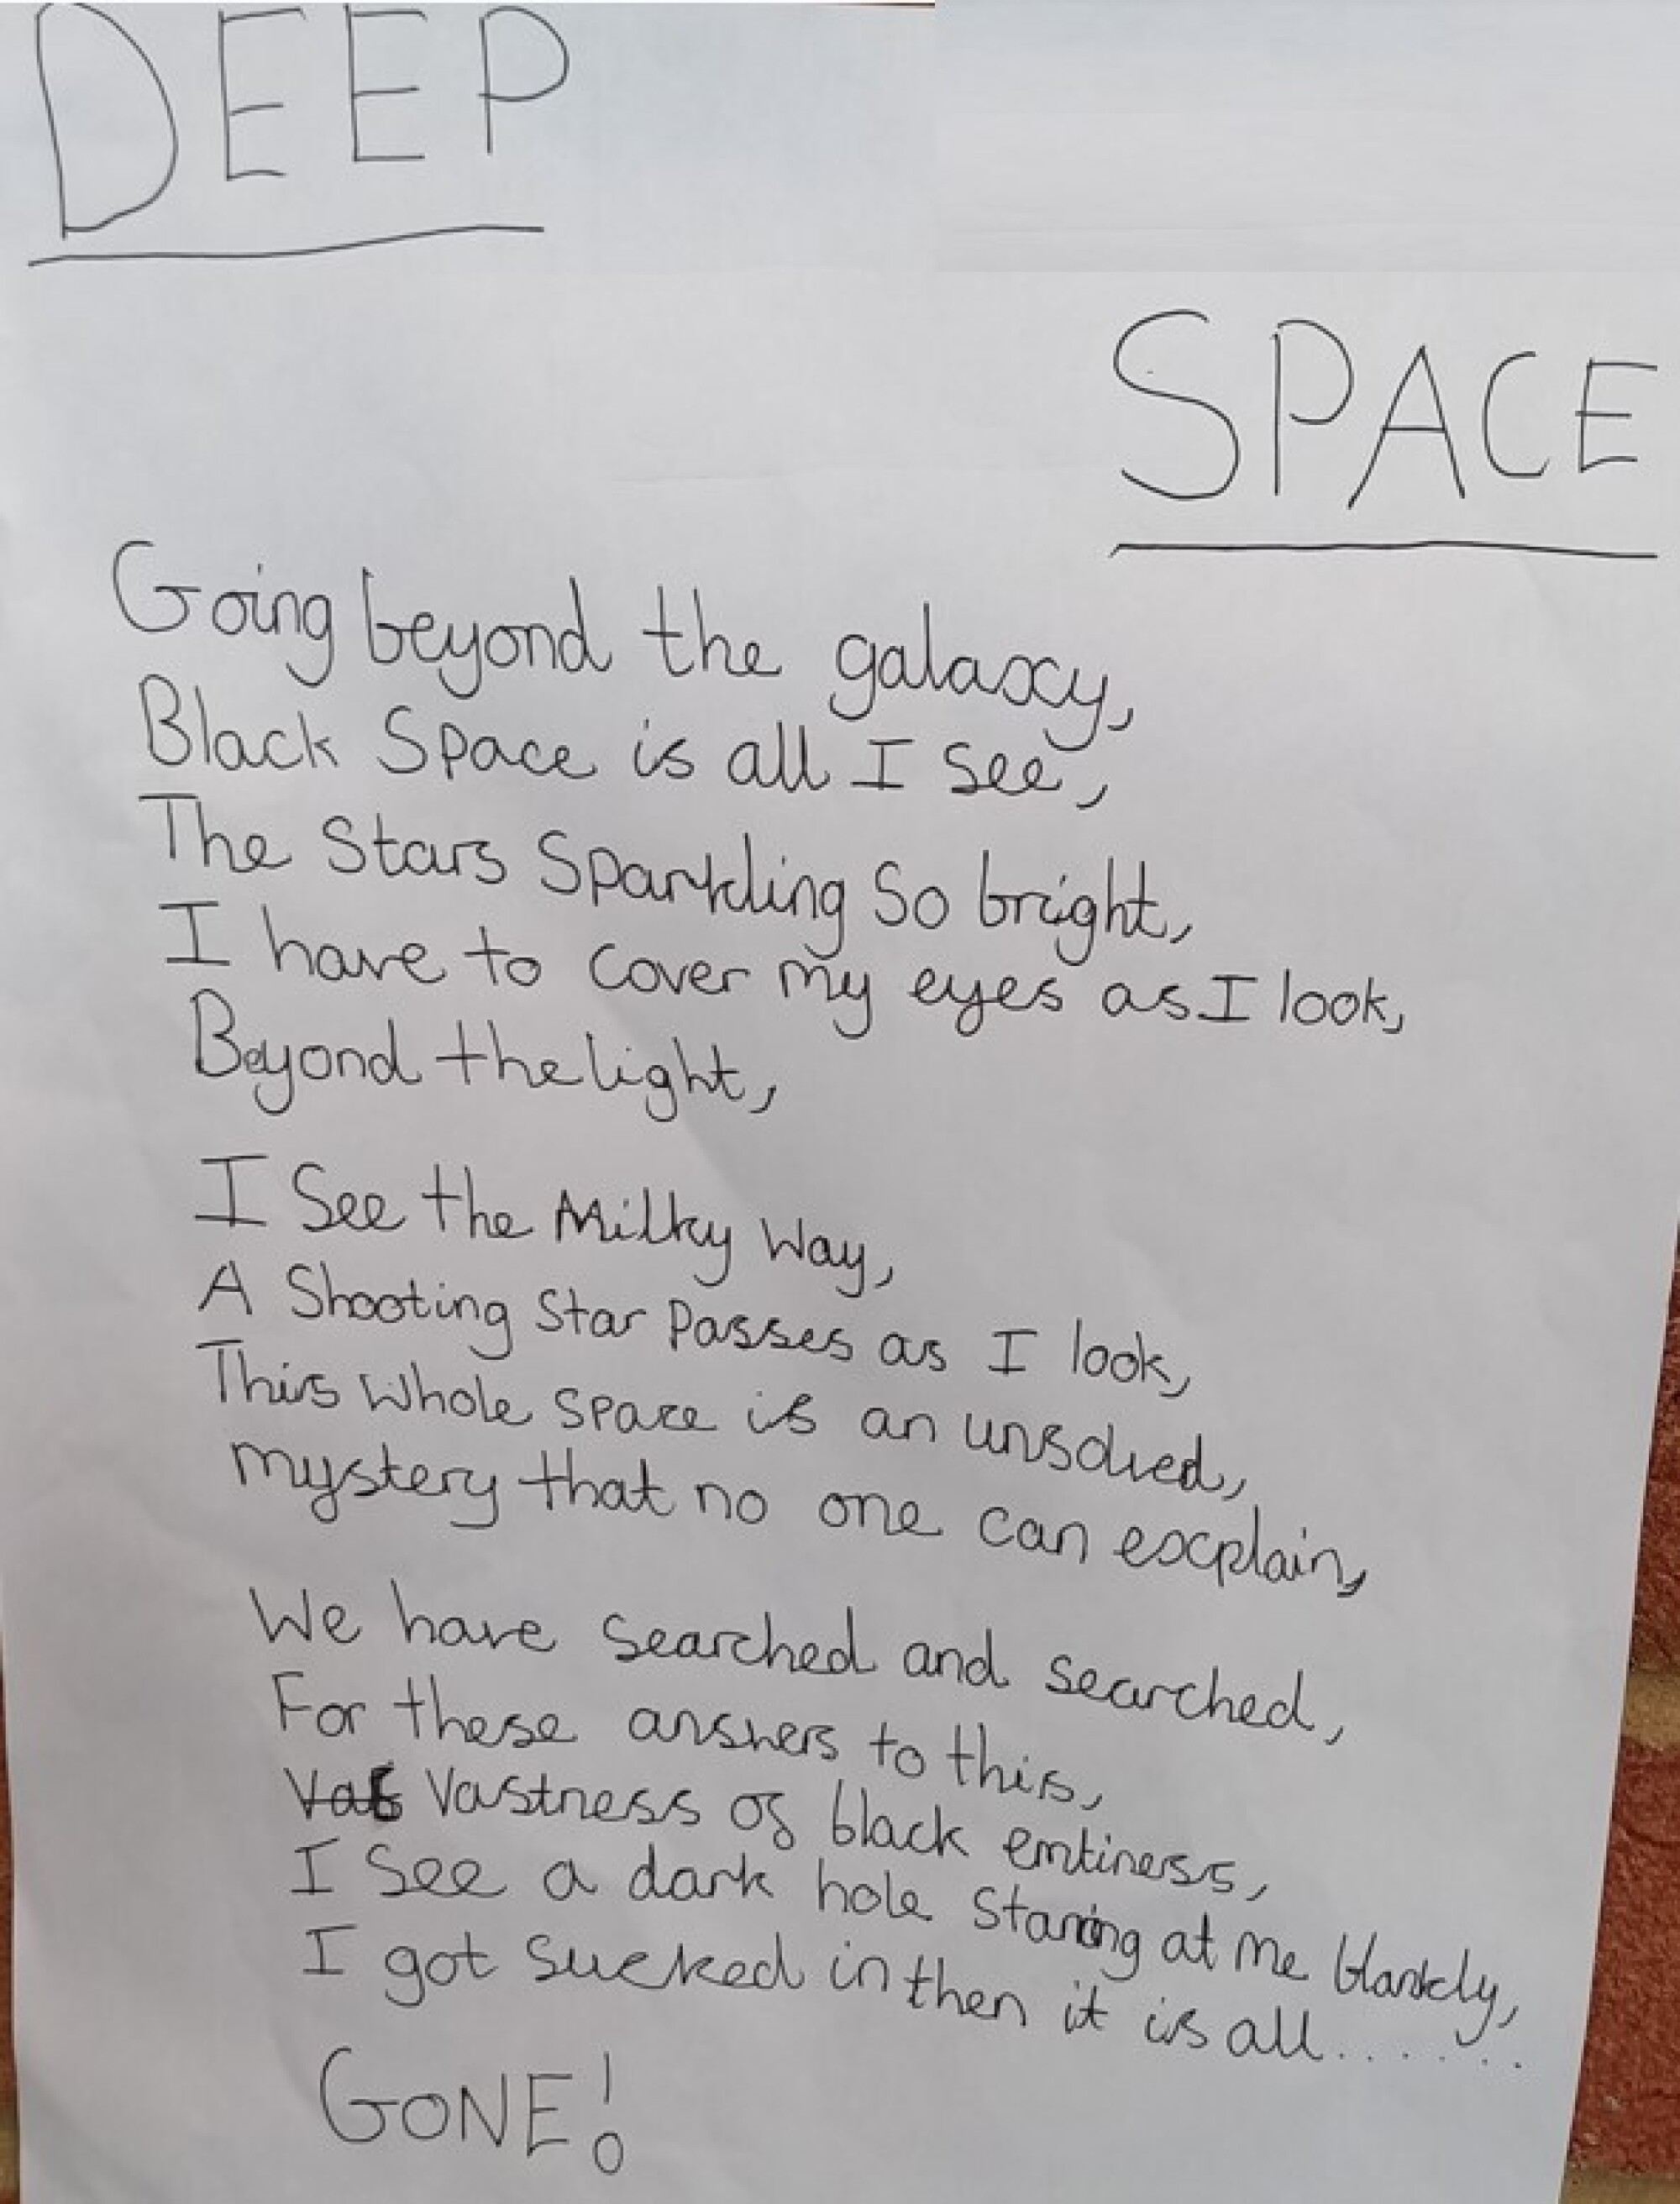 DEEP
SPACE
Going beyond the galaxy,
Black Space is all I see,
The Stars Sparkling So bright,
I have to cover my eyes as I look,
Beyond the light,
I See the Milky Way,
A Shooting Star Passes as I look,
This whole space is an unsolved,
mystery that no one can explain,
We have searched and searched,
For these answers to this,
Vastness of black emtiness,
I See a dark hole staring at me blankly,
I got sucked in then it is all.......
GONE!